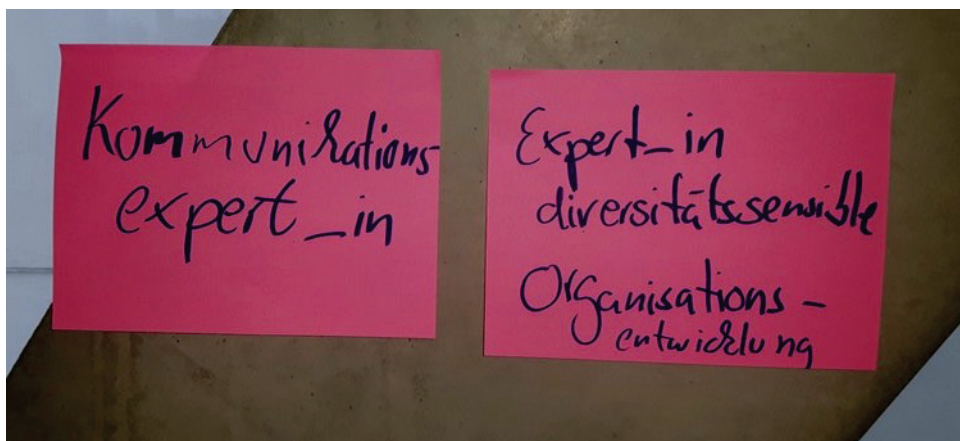 Kommunikations
expert_in
Expert_in
diversitätssensible
Organisations-
entwicklung